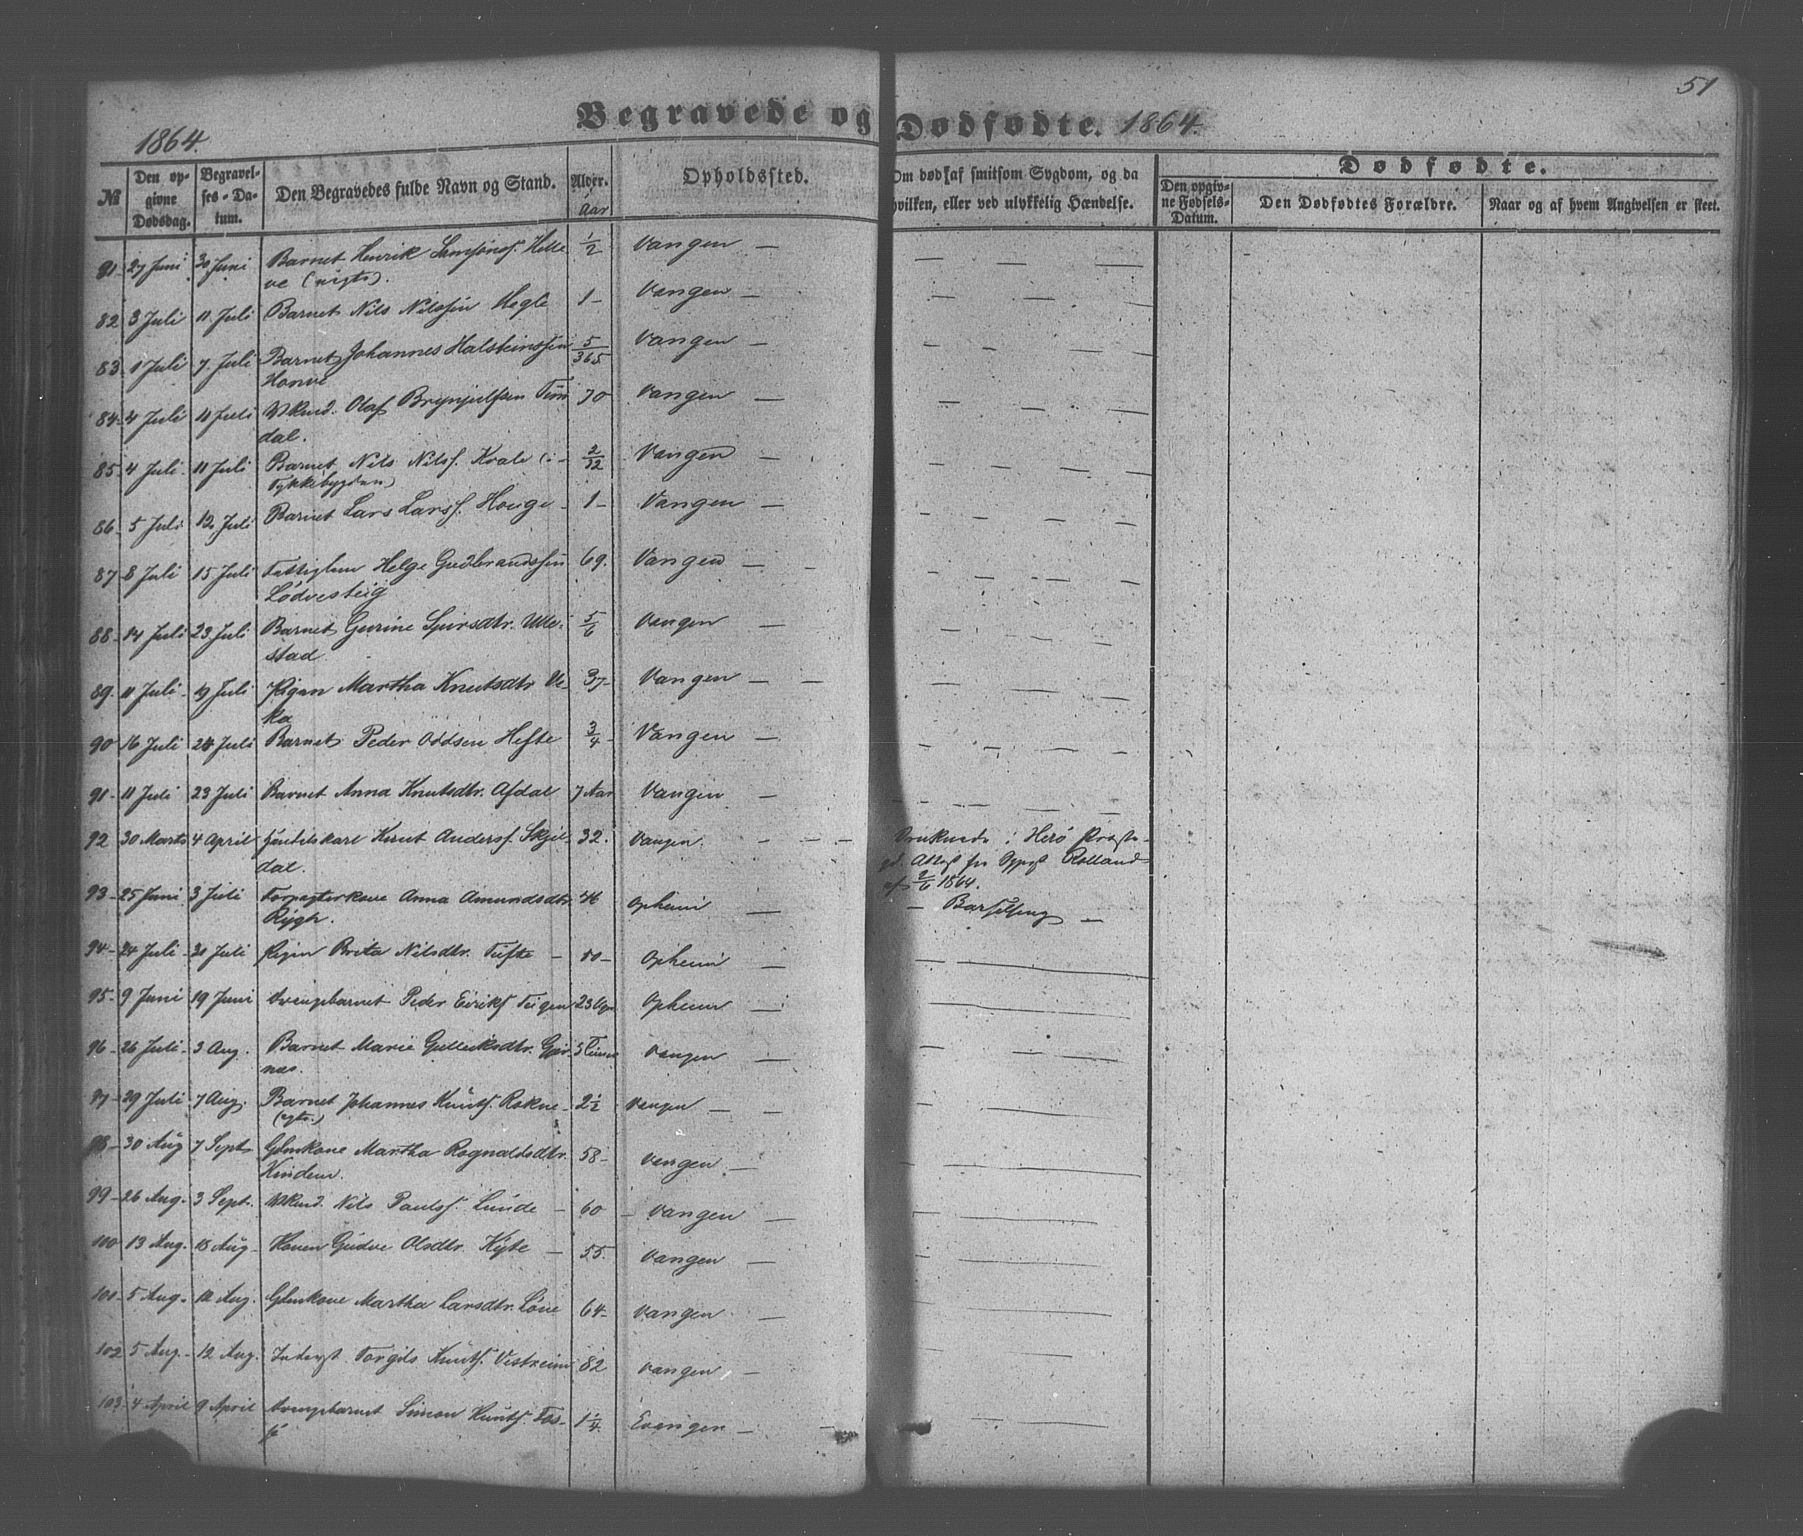 51
Begravede og Dødfødte. 1864.
1864.
№ Den opgivne Dødsdag. Begravelses-Datum. Den Begravedes fulde Navn og Stand. Alder. Aar Opholdssted. Om død af smitsom Sygdom, og da hvilken, eller ved ulykkelig Hændelse. Dødfødte.
Den opgivne Fødsels-Datum. Den Dødfødtes Forældre. Naar og af hvem Angivelsen er skeet.
81 27 Juni 30 Juni Barnet Henrik Samsons. Helle 1/2 Vangen — — — —
ve (nigts).
82 3 Juli 11 Juli Barnet Nils Nilssen Hegle 1 – Vangen — — — —
83 1 Juli 7 Juli Barnet Johannes Halsteinssen 5/365 Vangen — — — —
84 4 Juli 11 Juli Olaf Brynjulfsen Tin 70 Vangen — — — —
dal.
85 4 Juli 11 Juli Barnet Nils Nilss. Kvale (i 2/32 Vangen — — — —
Tykkebygden)
86 5 Juli 12 Juli Barnet Lars Larss. Houge 1 – Vangen — — — —
87 8 Juli 15 Juli Fattiglem Helge Gudbrandssen 69. Vangen — — — —
Lødvesteig
88 14 Juli 23 Juli Barnet Gurine Sjursdtr. Ulle- 5/6 Vangen — — — —
stad.
89. 11 Juli 19 Juli Pigen Martha Knutsdtr Ve- 37 Vangen — — — —
ka
90 16 Juli 24 Juli Barnet Peder Oddsen Hefte 3/4 Vangen — — — —
91 11 Juli 23 Juli Barnet Anna Knutsdtr. Afdal 7 Aar Vangen — — — —
92 30 Marts 4 April Knut Anderss. Skjel- 32. Vangen. — — Druknede i Herø Præste-
dal. gd. Attest fra Rolland
af 2/6 1864.
93 25 Juni 3 Juli Forpagterkone Anna Amundsdtr. Opheim — — Barselseng —
Rÿgh.
94 24 Juli 31 Juli Pigen Brita Nilsdtr. Tufte — 50 Opheim — —
95 9 Juni 19 Juni Drengebarnet Peder Eiriks. Teigen 23 Opheim — —
96 26 Juli 3 Aug. Barnet Marie Gulleiksdtr. Gjer- 5 Timer Vangen — —
nes.
97 29 Juli 7 Aug. Barnet Johannes Knuts. Rokne 2 1/2 Vangen — — —
98 30 Aug 7 Sept Gdmkone Martha Rognaldsdtr. 58 Vangen. — —
Kindem.
99 26 Aug. 3 Sept. Nils Pauls. Lunde — 60 Vangen — —
100 13 Aug. 18 Aug Konen Gudve Olsdtr. Kÿte — 55. Vangen — —
101 5 Aug. 12 Aug. Gdmkone Martha Larsdtr. Løne 64 Vangen — —
102 5 Aug. 12 Aug. Inderst Torgils Knuts. Vestreim 82 Vangen — —
103 4 April 9 April Drengebarnet Simon Knuts. 1 1/4 Evangen — — —